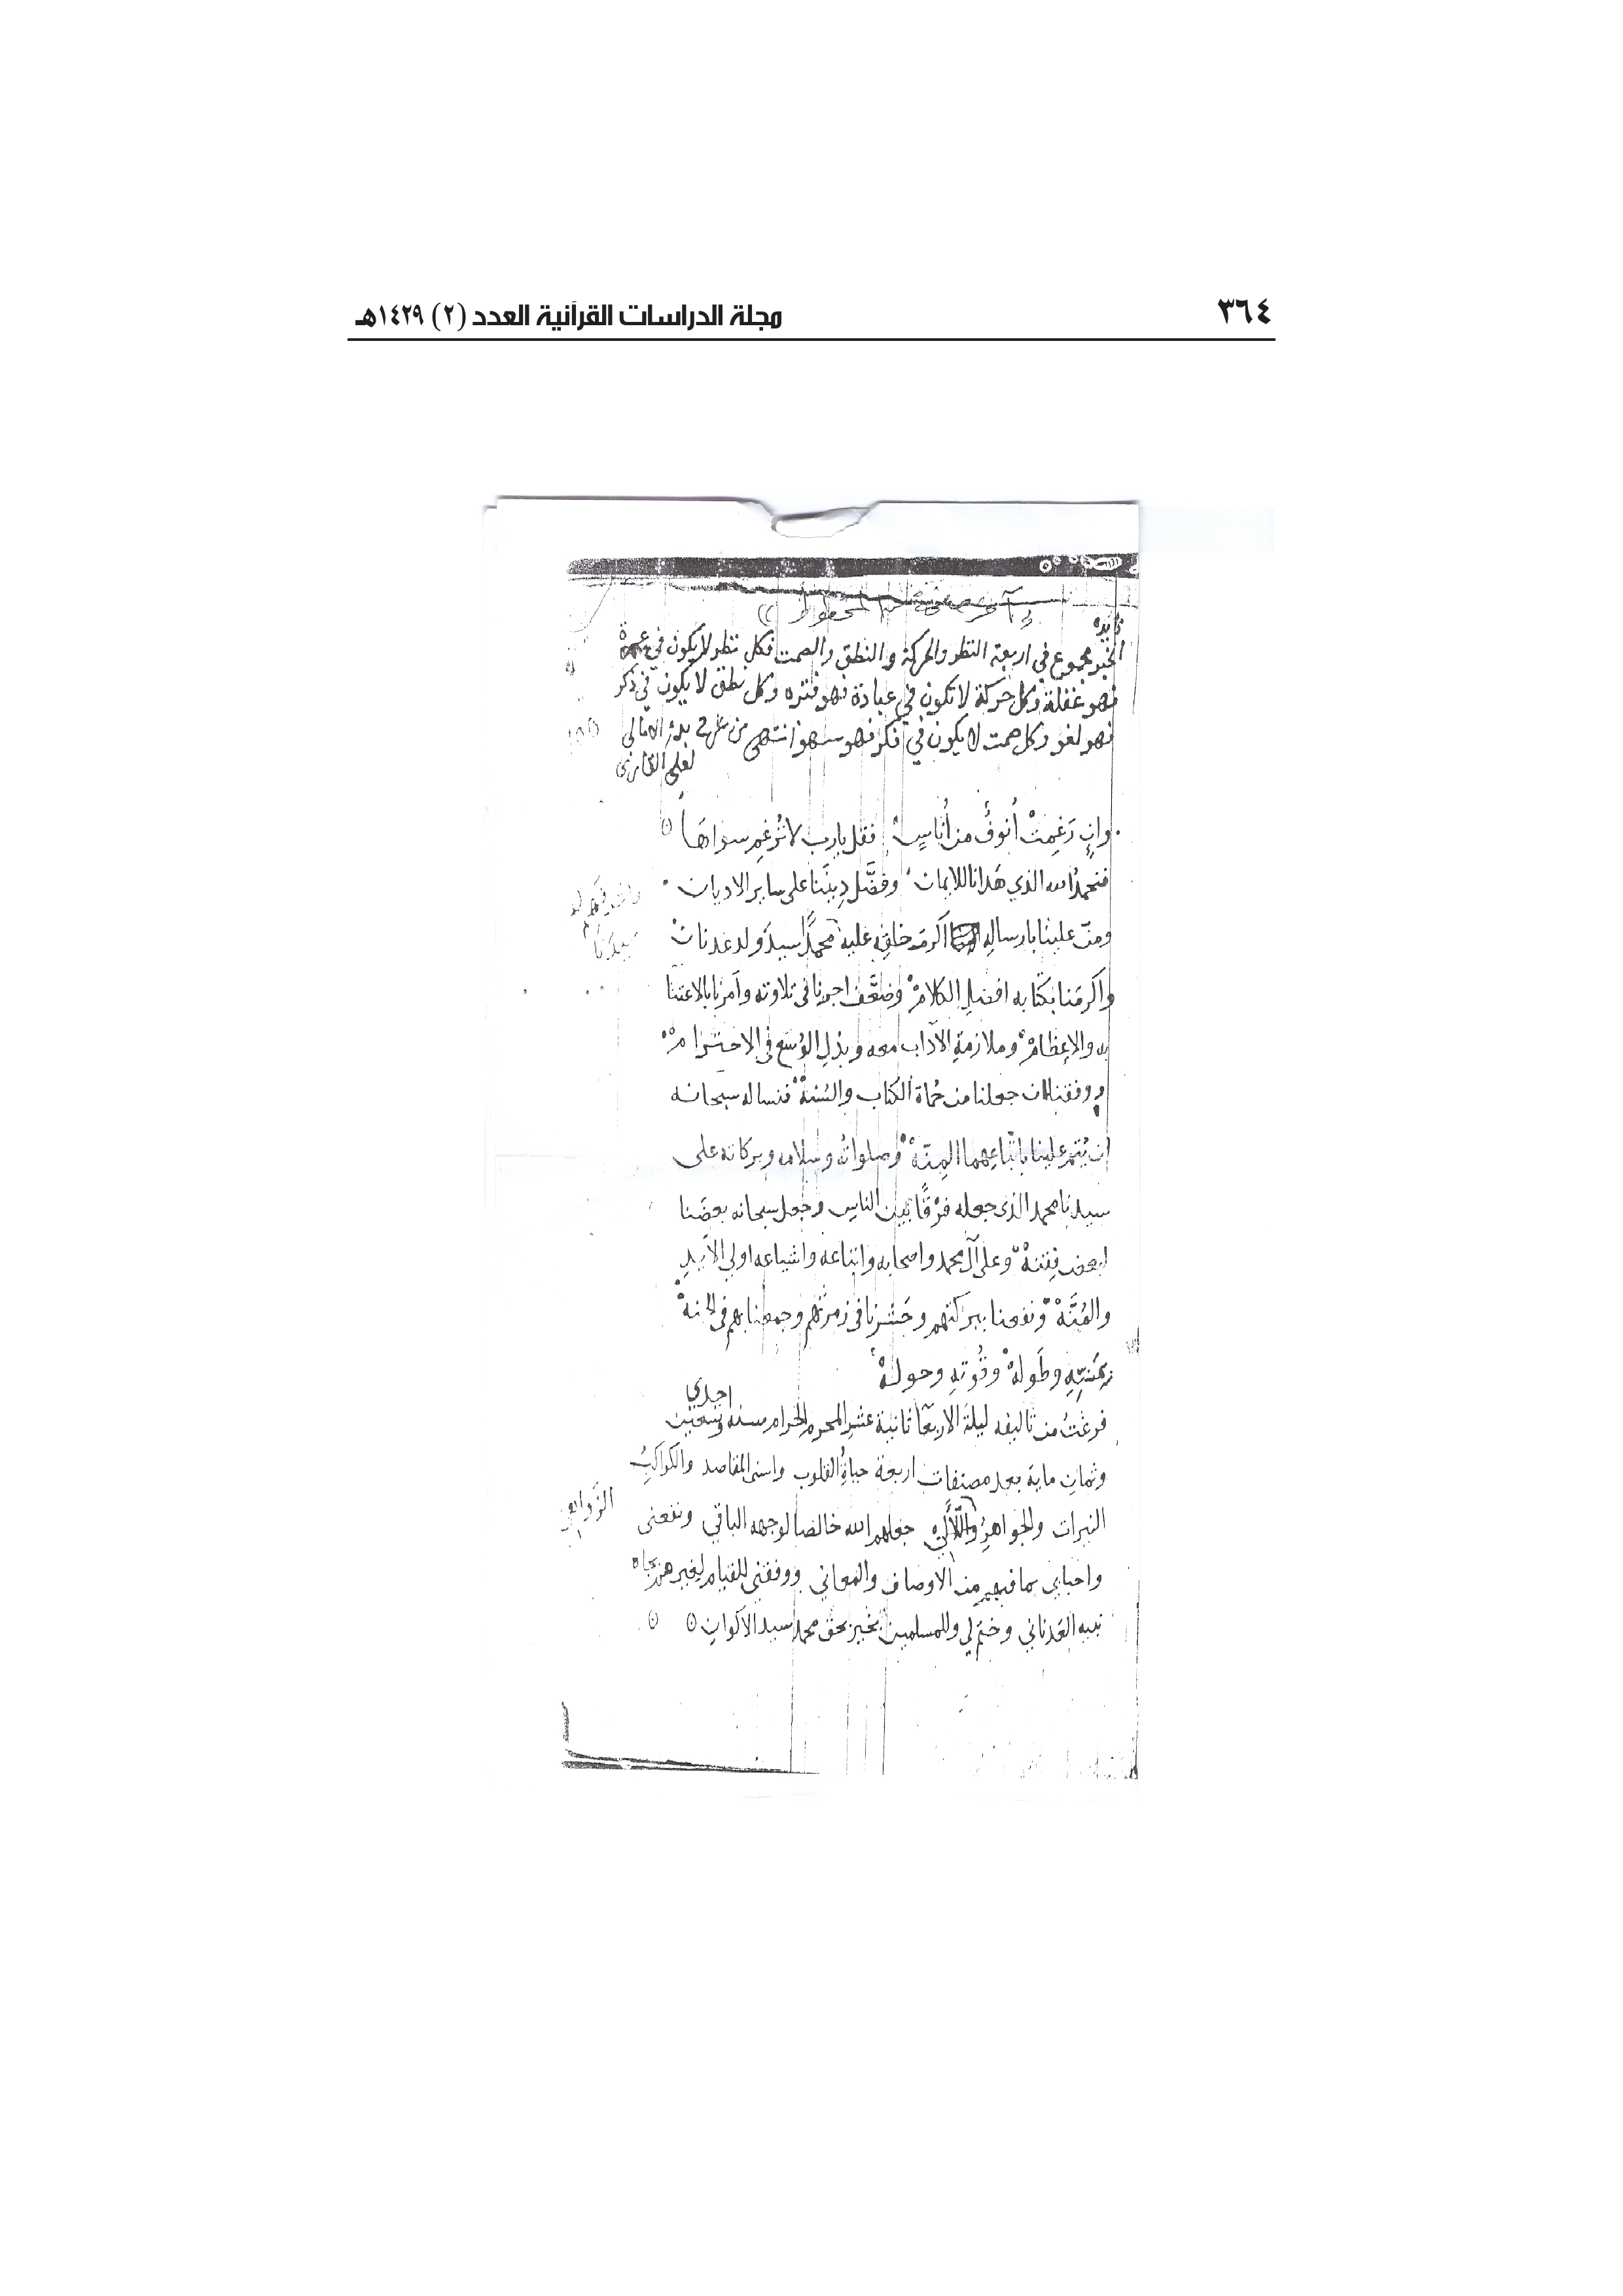 ٣٦٤
مجلة الدراسات القرآنية العدد (٢) ١٤٢٩هـ
فايده
الخير مجموع في اربعة النظر والحركة والنطق والصمت فكل نظر لا يكون في عبرة
فهو غفلة وكل حركة لا تكون في عبادة فهو فترة وكل نطق لا يكون في ذكر
فهو لغو وكل صمت لا يكون في فكر فهو سهو انتهى من شرح بدء الامالي
لعلي القاري
وان رَغِمتْ اُنوفٌ من اُناسٍ فقل يارب لا تُرغِم سواها
فنحمدُ الله الذي هَدانا للايمان وفضَّل دِينَنا على ساير الاديان
ومنّ علينا بارساله اكرم خلقِه عليه محمدًا سيدَ ولد عدنان
واكرمنا بكتابه افضلِ الكلام وضعَّف اجورنا في تلاوته وامرنا بالاعتنا
به والاِعظام وملازمةِ الآداب معه وبذلِ الوُسْع في الاحترام
ووفقنا ان جعلنا من حُماة الكتاب والسُنة فنساله سبحانه
ان يُتم علينا باتّباعِهما المِنّة وصلواتُه وسلامه وبركاته على
سيدنا محمد الذي جعله فَرْقًا بين الناس وجعل سبحانه بعضَنا
لبعض فِتنة وعلى آل محمد واصحابه واتباعه واشياعه اولي الاَيدِ
والمُنَّة ونفعنا ببركتهم وحَشرنا في زمرتهم وجمعنا بهم في الجنة
بمَنّهِ وطَوله وقُوتهِ وحوله
فرغتُ من تاليفه ليلة الاربعآ ثانية عشر المحرم الحرام سنه احدى وتسعين
وثمانِ ماية بعد مصنفات اربعة حياةُ القلوب واسنى المقاصد والكواكبُ
النيرات والجواهرُ واللآلئ جعلهم الله خالصا لوجهه الباقي ونفعنى
واحبابي بما فيهم من الاوصاف والمعاني ووفقني للقيام لغيرهن بجاه
نبيه العَدناني وختم لي وللمسلمين بخير بحق محمد سيد الاكوان